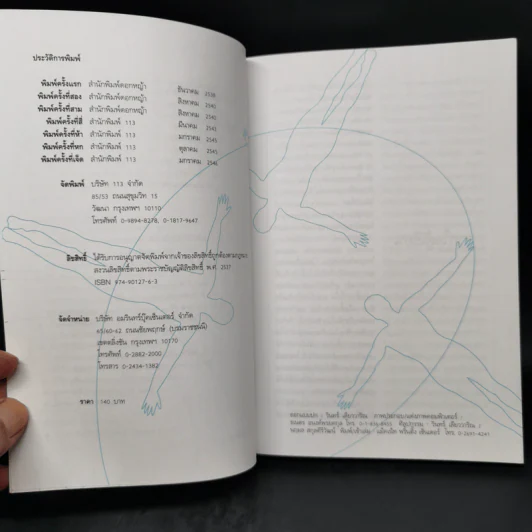 ประวัติการพิมพ์
พิมพ์ครั้งแรก สำนักพิมพ์ดอกหญ้า ธันวาคม 2538
พิมพ์ครั้งที่สอง สำนักพิมพ์ดอกหญ้า สิงหาคม 2540
พิมพ์ครั้งที่สาม สำนักพิมพ์ดอกหญ้า สิงหาคม
พิมพ์ครั้งที่สี่ สำนักพิมพ์ 113 มีนาคม 2541
พิมพ์ครั้งที่ห้า สำนักพิมพ์ 113 มกราคม 2545
พิมพ์ครั้งที่หก สำนักพิมพ์ 113 ตุลาคม 2545
พิมพ์ครั้งที่เจ็ด สำนักพิมพ์ 113 มกราคม 2546
จัดพิมพ์ บริษัท 113 จำกัด
85/53 ถนนสุขุมวิท 15
วัฒนา กรุงเทพฯ 10110
โทรศัพท์ 0-9894-8278, 0-1817-9647
ลิขสิทธิ์ ได้รับการอนุญาตจัดพิมพ์จากเจ้าของลิขสิทธิ์ถูกต้องตามกฎหมาย
สงวนลิขสิทธิ์ตามพระราชบัญญัติลิขสิทธิ์ พ.ศ. 2537
ISBN 974-90127-6-3
จัดจำหน่าย บริษัท อมรินทร์บุ๊คเซ็นเตอร์ จำกัด
ถนนชัยพฤกษ์ (บรมราชชนนี)
เขตตลิ่งชัน กรุงเทพฯ 10170
โทรศัพท์ 0-2882-2000
โทรสาร 0-2434-1382
ราคา 140 บาท